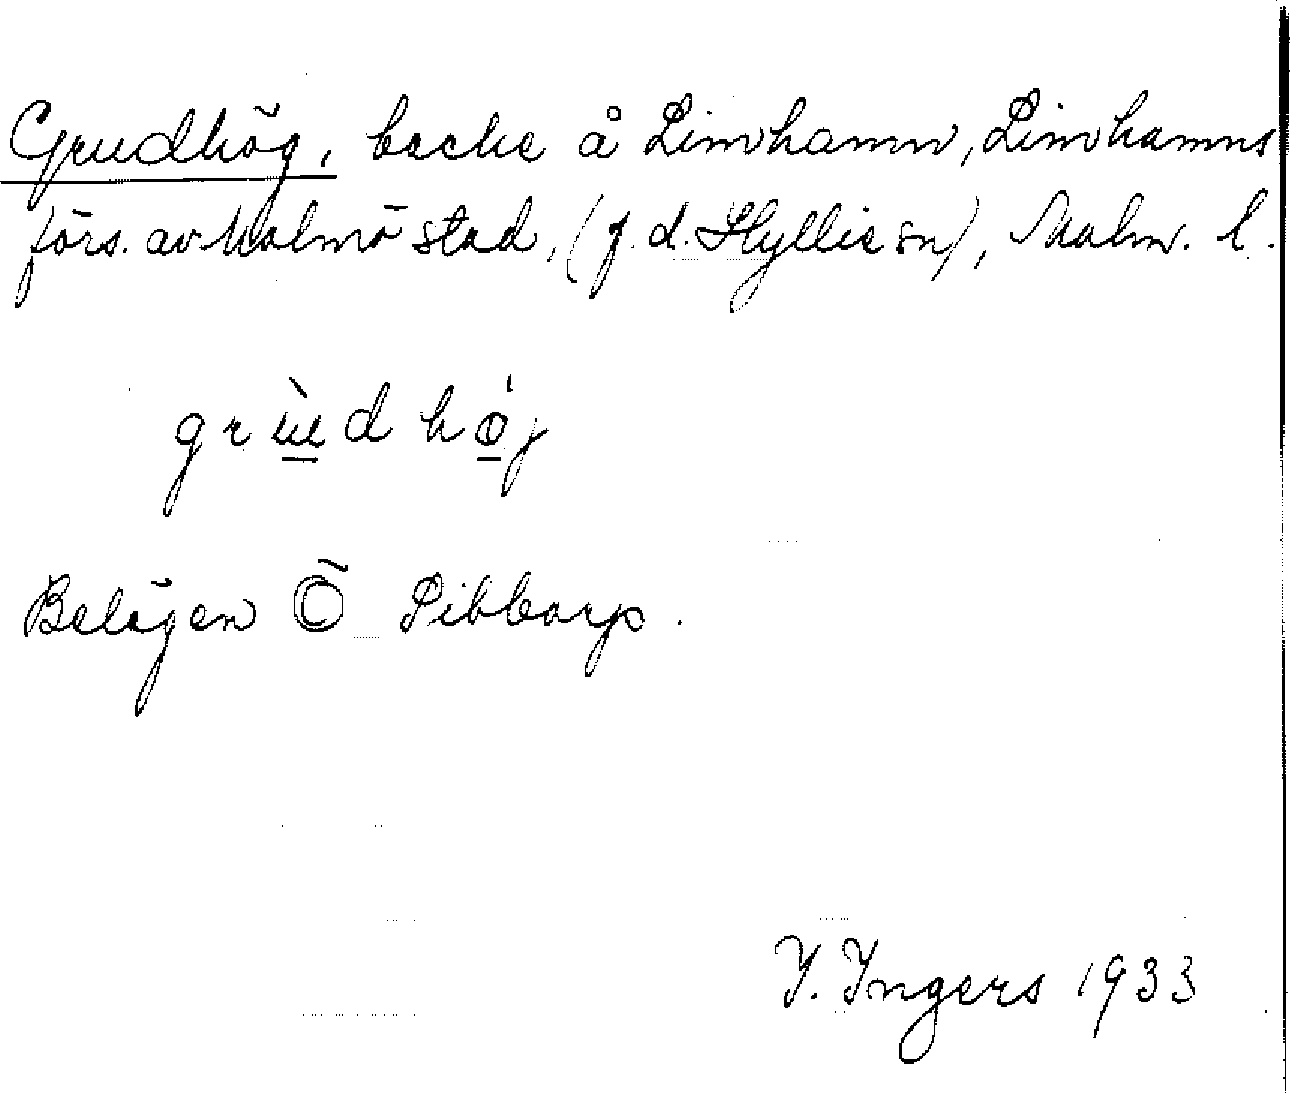 Grudhög, backe å Limhamn, Limhamns
förs. av Malmö stad, (f. d. Hyllie sn), Malm. l.
grùdhö́j
Belägen Ö Pibbarp.
I. Ingers 1933